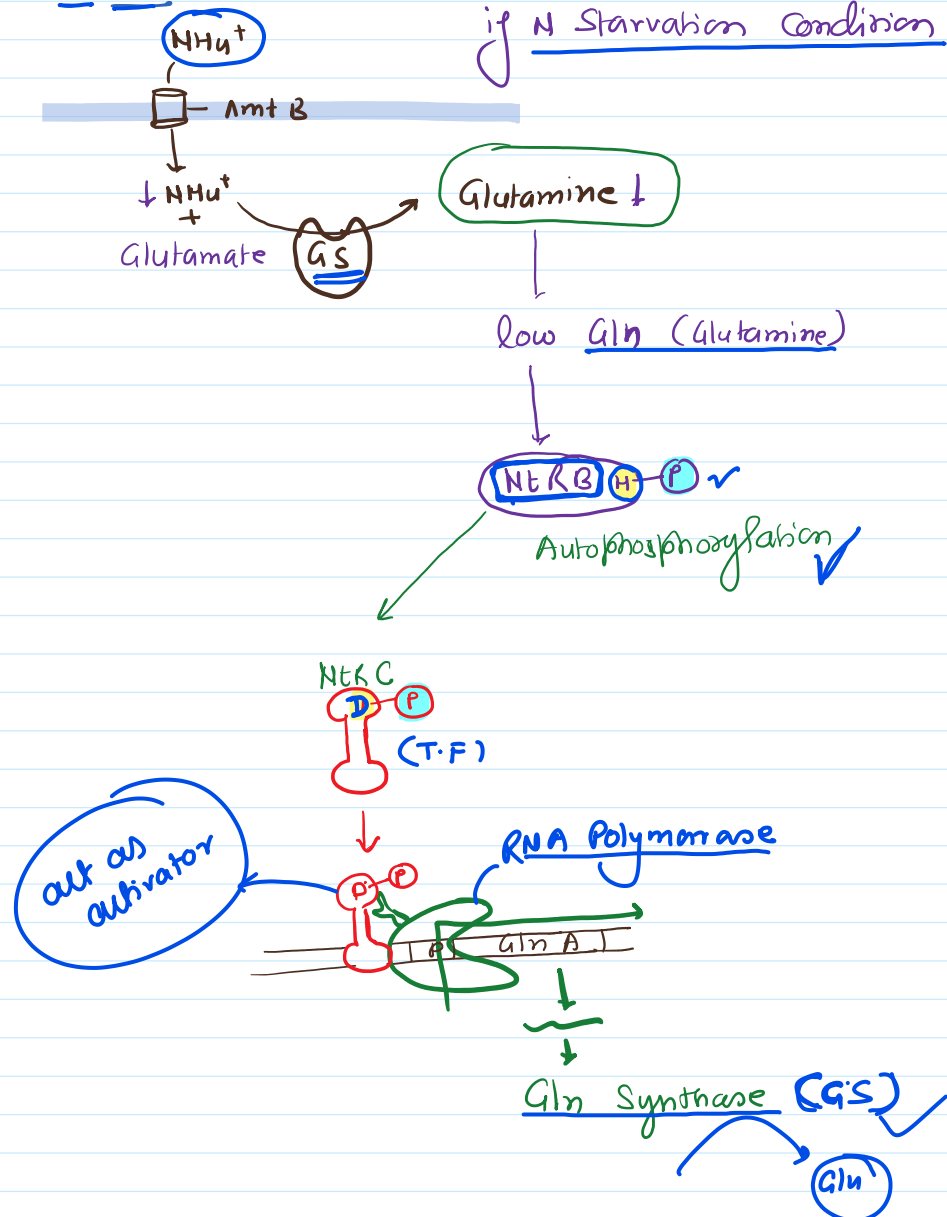 if N Starvation Condition
NH4+
Amt B
↓ NH4+
+
Glutamate
GS
Glutamine ↓
low Gln (Glutamine)
NtRB H P
Autophosphorylation
NtRC
D P
(T.F)
RNA Polymerase
act as
activator
D P
P Gln A
Gln Synthase (GS)
Gln